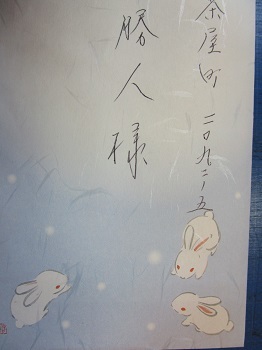 茶屋町二〇九二-五
勝人様